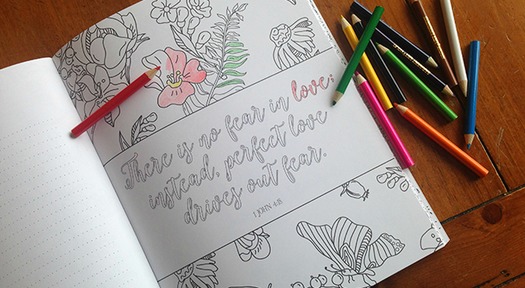 There is no fear in love:
instead, perfect love
drives out fear.
1 JOHN 4:18